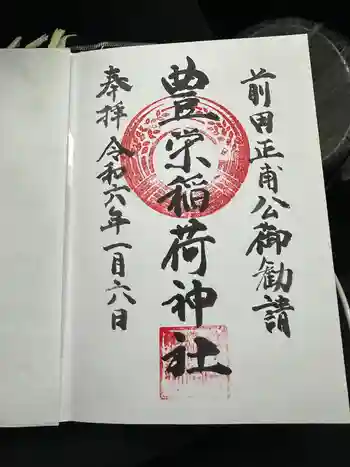 前田正甫公御勧請
豊栄稲荷神社
奉拝 令和六年一月六日